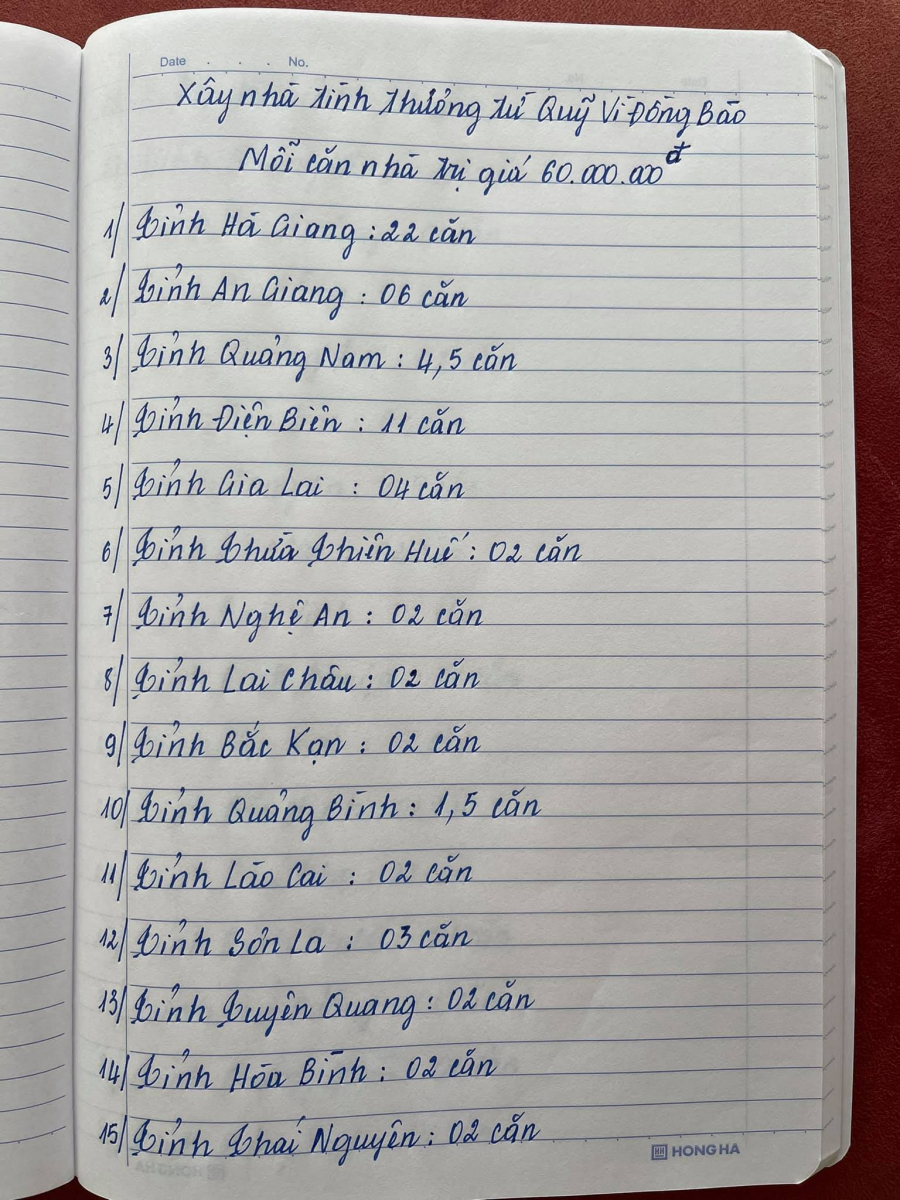 Date . . . No.
Xây nhà tình thương từ Quỹ Vì Đồng Bào
Mỗi căn nhà trị giá 60.000.000đ
1/ Tỉnh Hà Giang : 22 căn
2/ Tỉnh An Giang : 06 căn
3/ Tỉnh Quảng Nam : 4,5 căn
4/ Tỉnh Điện Biên : 11 căn
5/ Tỉnh Gia Lai : 04 căn
6/ Tỉnh Thừa Thiên Huế : 02 căn
7/ Tỉnh Nghệ An : 02 căn
8/ Tỉnh Lai Châu : 02 căn
9/ Tỉnh Bắc Kạn : 02 căn
10/ Tỉnh Quảng Bình : 1,5 căn
11/ Tỉnh Lào Cai : 02 căn
12/ Tỉnh Sơn La : 03 căn
13/ Tỉnh Tuyên Quang : 02 căn
14/ Tỉnh Hòa Bình : 02 căn
15/ Tỉnh Thái Nguyên : 02 căn
HH HONG HA